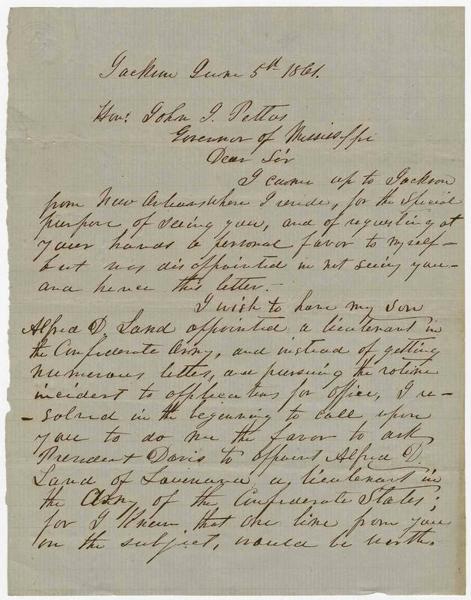 Jackson June 5th 1861.
Hon: John J. Pettus
Governor of Mississippi
Dear Sir
I came up to Jackson
from New Orleans where I reside, for the special
purpose, of seeing you, and of requesting at
your hands a personal favor to myself—
but was disappointed in not seeing you—
and hence this letter.
I wish to have my son
Alfred D. Land appointed a lieutenant in
the Confederate Army, and instead of getting
numerous letters, and pursuing the rotine
incident to applications for office, I re—
solved in the beginning to call upon
you to do me the favor to ask
President Davis to appoint Alfred D.
Land of Louisiana a, lieutenant in
the Army of the Confederate States;
for I knew, that one line from you
on the subject, would be worth